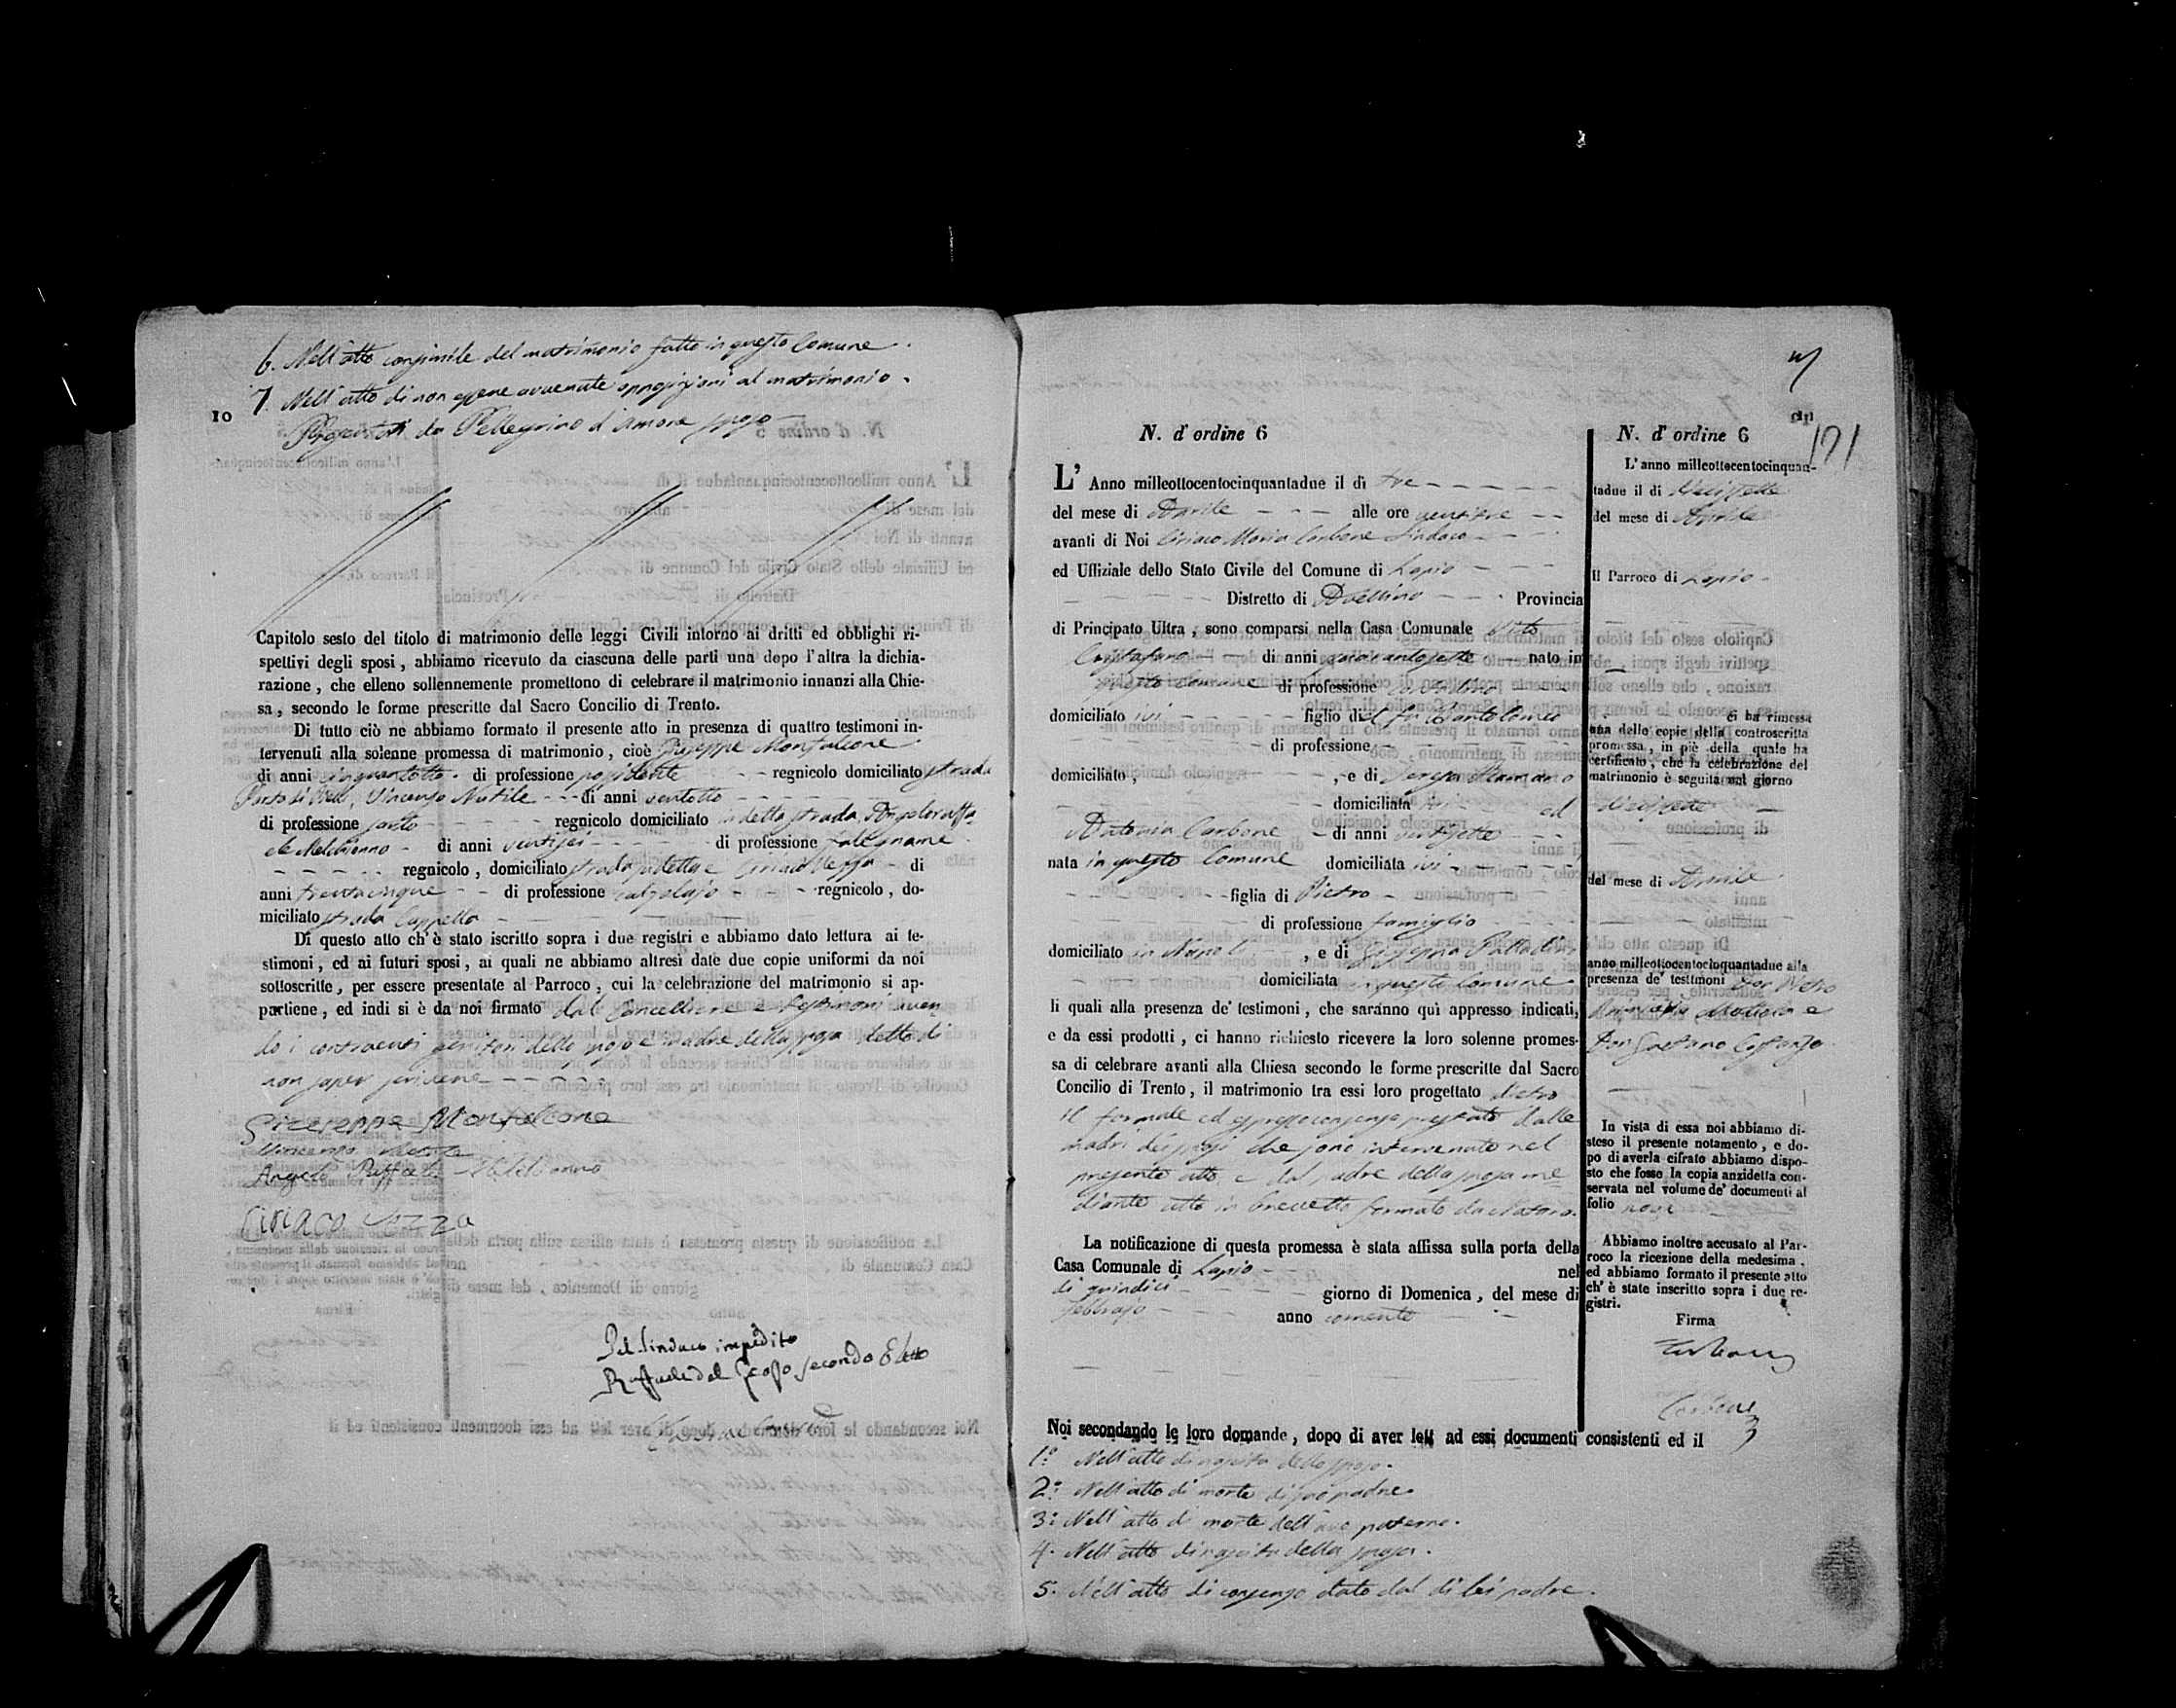 6. Nell'atto consimile del matrimonio fatto in questo Comune.
7. Nell'atto di non essere avvenute opposizioni al matrimonio.
10
da Pellegrino d'Amore sposo
Capitolo sesto del titolo di matrimonio delle leggi Civili intorno ai dritti ed obblighi ri-
spettivi degli sposi, abbiamo ricevuto da ciascuna delle parti una dopo l'altra la dichia-
razione, che elleno sollennemente promettono di celebrare il matrimonio innanzi alla Chie-
sa, secondo le forme prescritte dal Sacro Concilio di Trento.
Di tutto ciò ne abbiamo formato il presente atto in presenza di quattro testimoni in-
tervenuti alla solenne promessa di matrimonio, cioè Giuseppe Monfalcone
di anni cinquantotto di professione possidente regnicolo domiciliato strada
Vincenzo Nutile di anni ventotto
di professione sarto regnicolo domiciliato in detta strada, Angeloraffa-
ele Melchionno di anni ventisei di professione falegname
regnicolo, domiciliato strada sudetta e Ciriaco di
anni trentacinque di professione calzolajo regnicolo, do-
miciliato strada Cappella
Di questo atto ch'è stato iscritto sopra i due registri e abbiamo dato lettura ai te-
stimoni, ed ai futuri sposi, ai quali ne abbiamo altresì date due copie uniformi da noi
sottoscritte, per essere presentate al Parroco, cui la celebrazione del matrimonio si ap-
partiene, ed indi si è da noi firmato dal Cancelliere e testimoni aven
do i contraenti genitori dello sposo e madre della sposa detto di
non saper scrivere
Giuseppe Monfalcone
Vincenzo Nutile
Angelo Raffaele Melchionno
Ciriaco
Pel Sindaco impedito
Raffaele del Grosso secondo Eletto
171
N. d'ordine 6
L'Anno milleottocentocinquantadue il dì tre
del mese di Aprile alle ore ventitre
avanti di Noi Ciriaco Maria Carbone Sindaco
ed Uffiziale dello Stato Civile del Comune di Lapio
Distretto di Avellino Provincia
di Principato Ultra, sono comparsi nella Casa Comunale Vito
Cristofano di anni quarantasette nato in
questo Comune di professione
domiciliato ivi figlio del fu Bartolomeo
di professione
domiciliato, , e di Teresa
domiciliata ivi ed
Antonia Carbone di anni ventisette
nata in questo Comune domiciliata ivi
figlia di Pietro
di professione famiglio
domiciliato in Napoli, e di Giuseppa Palladino
domiciliata in questo Comune
li quali alla presenza de' testimoni, che saranno quì appresso indicati,
e da essi prodotti, ci hanno richiesto ricevere la loro solenne promes-
sa di celebrare avanti alla Chiesa secondo le forme prescritte dal Sacro
Concilio di Trento, il matrimonio tra essi loro progettato dietro
il formale ed espresso consenso prestato dalle
madri dei sposi che sono intervenute nel
presente atto e dal padre della sposa me
diante atto in brevetto formato da Notaro.
La notificazione di questa promessa è stata affissa sulla porta della
Casa Comunale di Lapio nel
dì quindici giorno di Domenica, del mese di
Febbrajo anno corrente
Noi secondando le loro domande, dopo di aver letti ad essi documenti consistenti ed il
1.° Nell'atto di nascita dello sposo.
2.° Nell'atto di morte di suo padre.
3.° Nell'atto di morte dell'avo paterno.
4. Nell'atto di nascita della sposa.
5. Nell'atto di consenso dato dal di lei padre.
N. d'ordine 6
L'anno milleottocentocinquan-
tadue il dì diecissette
del mese di Aprile
Il Parroco di Lapio
Ci ha rimessa
una delle copie della controscritta
promessa, in piè della quale ha
certificato, che la celebrazione del
matrimonio è seguita nel giorno
diecissette
del mese di Aprile
anno milleottocentocinquantadue alla
presenza de' testimoni Don Pietro
e
Don Gaetano
In vista di essa noi abbiamo di-
steso il presente notamento, e do-
po di averla cifrato abbiamo dispo-
sto che fosse la copia anzidetta con-
servata nel volume de' documenti al
folio nove
Abbiamo inoltre accusato al Par-
roco la ricezione della medesima,
ed abbiamo formato il presente atto
ch'è stato inscritto sopra i due re-
gistri.
Firma
Carbone